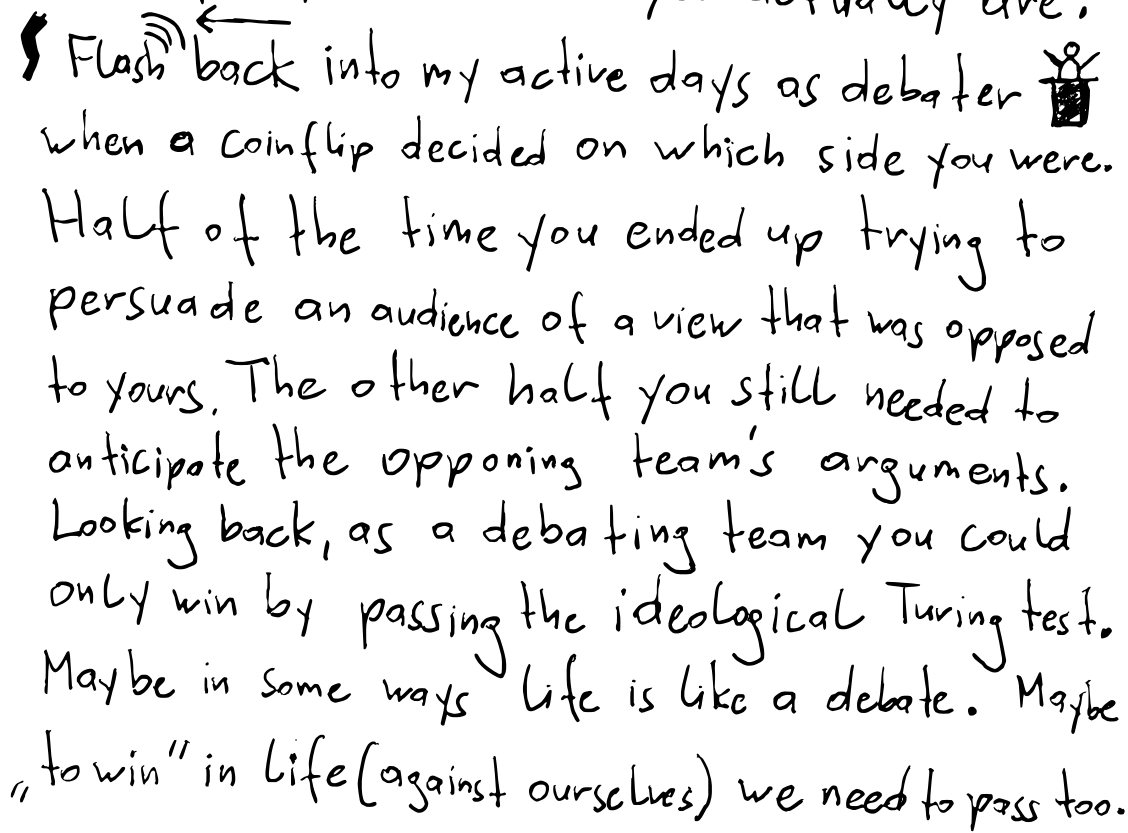 you actually are.
Flash back into my active days as debater
when a coinflip decided on which side you were.
Half of the time you ended up trying to
persuade an audience of a view that was opposed
to yours. The other half you still needed to
anticipate the opponing team's arguments.
Looking back, as a debating team you could
only win by passing the ideological Turing test.
Maybe in some ways life is like a debate. Maybe
„to win" in life (against ourselves) we need to pass too.